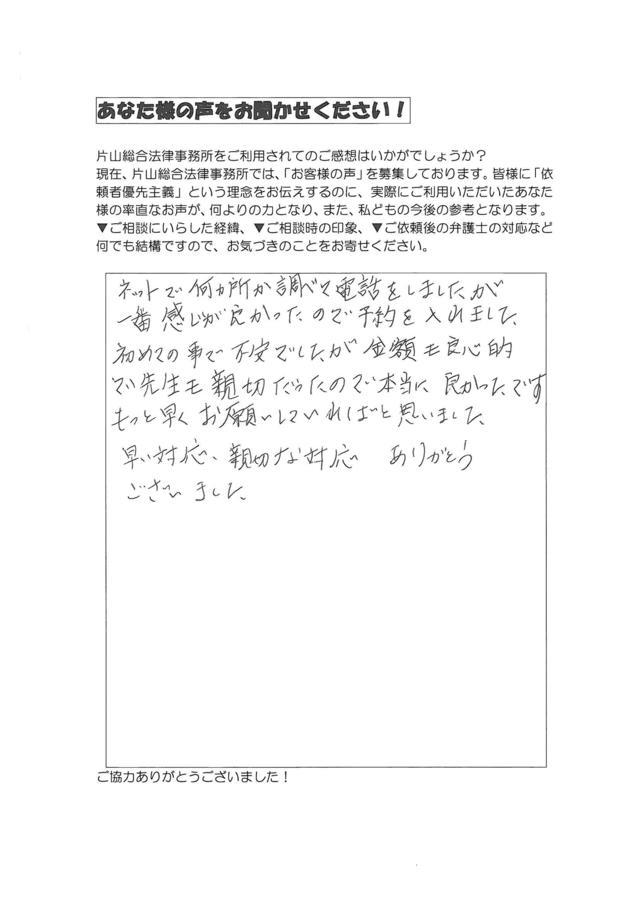 あなた様の声をお聞かせください！
片山総合法律事務所をご利用されてのご感想はいかがでしょうか？
現在、片山総合法律事務所では、「お客様の声」を募集しております。皆様に「依
頼者優先主義」という理念をお伝えするのに、実際にご利用いただいたあなた
様の率直なお声が、何よりの力となり、また、私どもの今後の参考となります。
▼ご相談にいらした経緯、▼ご相談時の印象、▼ご依頼後の弁護士の対応など
何でも結構ですので、お気づきのことをお寄せください。
ネットで何カ所か調べて電話をしましたが
一番感じが良かったので予約を入れました
初めての事で不安でしたが金額も良心的
で先生も親切だったので本当に良かったです
もっと早くお願いしていればと思いました
早い対応、親切な対応 ありがとう
ございました
ご協力ありがとうございました！